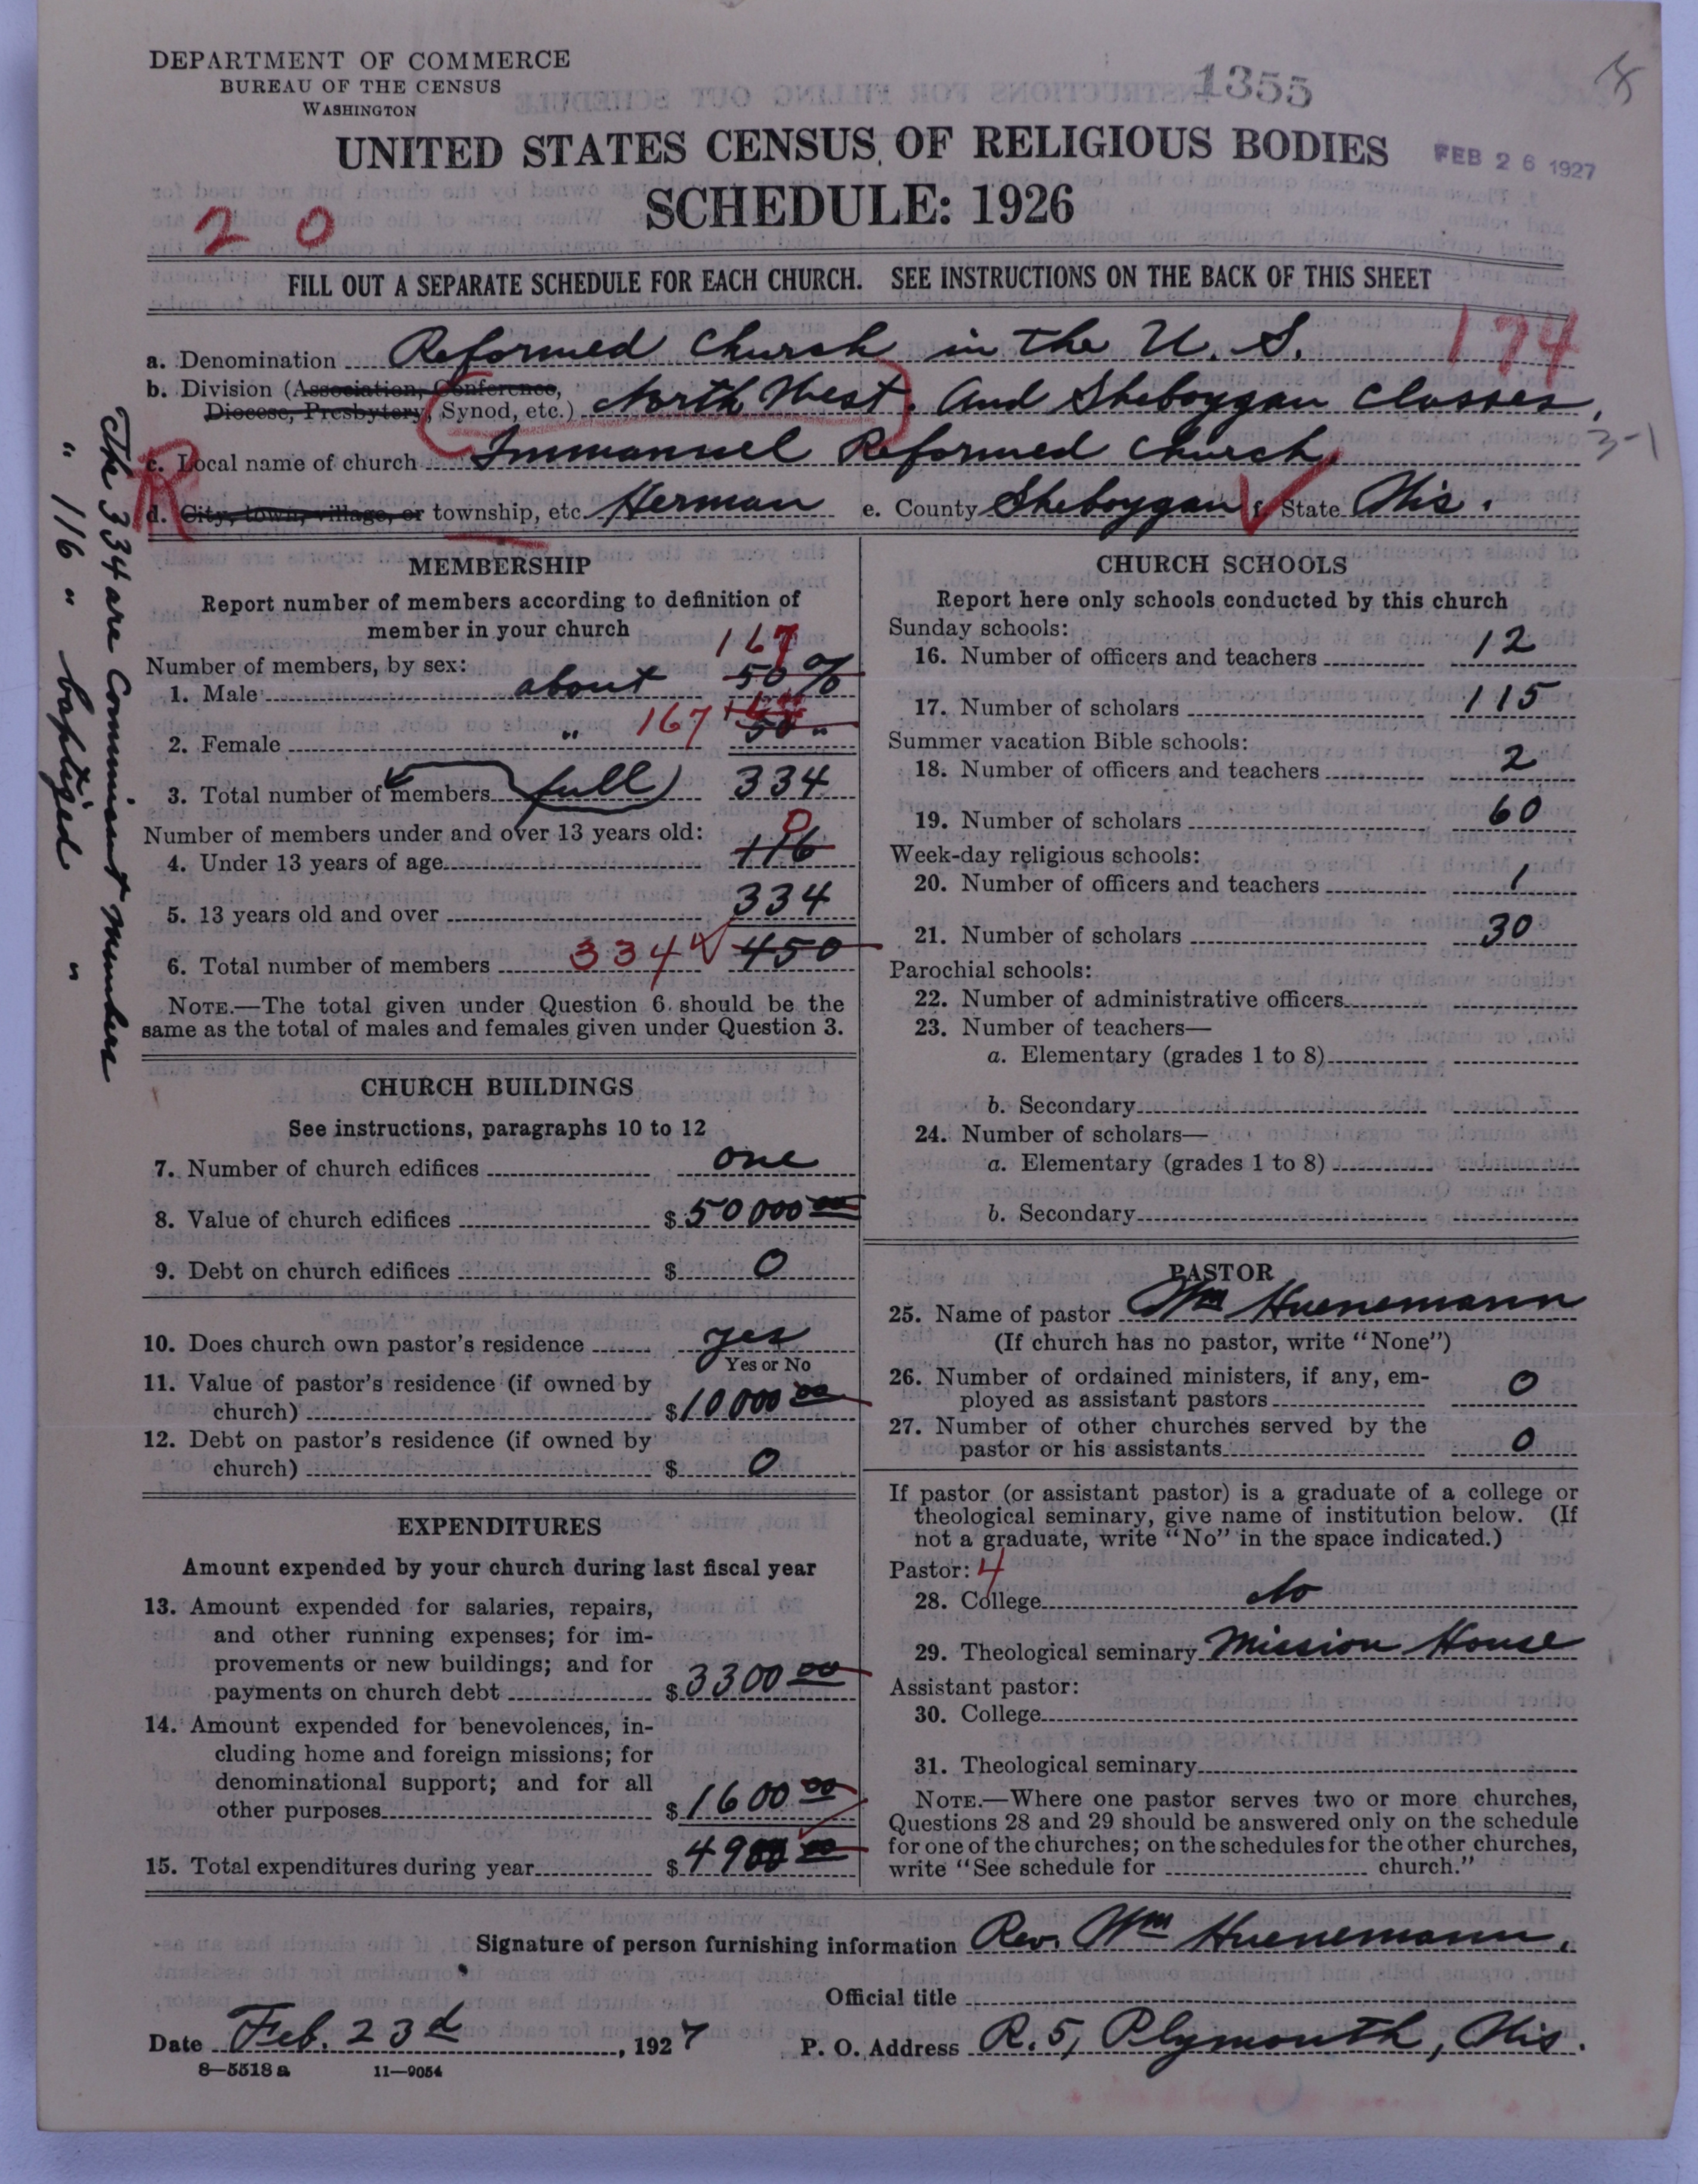 DEPARTMENT OF COMMERCE
BUREAU OF THE CENSUS
WASHINGTON
1355
UNITED STATES CENSUS OF RELIGIOUS BODIES
FEB 26 1927
SCHEDULE: 1926
2 0
FILL OUT A SEPARATE SCHEDULE FOR EACH CHURCH. SEE INSTRUCTIONS ON THE BACK OF THIS SHEET
174
a. Denomination Reformed Church in the U. S.
b. Division (Association, Conference,
Diocese, Presbytery, Synod, etc.) North West. And Sheboygan Classes,
3-1
c. Local name of church Immanuel Reformed Church,
R
d. City, town, village, or township, etc. Herman e. County Sheboygan f. State Wis.
The 334 are Communicant members
" 116 " baptized "
MEMBERSHIP
Report number of members according to definition of
member in your church
Number of members, by sex:
167
1. Male about 50 %
2. Female " 167 50 "
3. Total number of members (full) 334
Number of members under and over 13 years old:
0
4. Under 13 years of age 116
5. 13 years old and over 334
6. Total number of members 334 450
NOTE.—The total given under Question 6 should be the
same as the total of males and females given under Question 3.
CHURCH BUILDINGS
See instructions, paragraphs 10 to 12
7. Number of church edifices one
8. Value of church edifices $ 50000 00
9. Debt on church edifices $ 0
10. Does church own pastor's residence yes
Yes or No
11. Value of pastor's residence (if owned by
church) $ 10000 00
12. Debt on pastor's residence (if owned by
church) $ 0
EXPENDITURES
Amount expended by your church during last fiscal year
13. Amount expended for salaries, repairs,
and other running expenses; for im-
provements or new buildings; and for
payments on church debt $ 3300 00
14. Amount expended for benevolences, in-
cluding home and foreign missions; for
denominational support; and for all
other purposes $ 1600 00
15. Total expenditures during year $ 4900 00
CHURCH SCHOOLS
Report here only schools conducted by this church
Sunday schools:
16. Number of officers and teachers 12
17. Number of scholars 115
Summer vacation Bible schools:
18. Number of officers and teachers 2
19. Number of scholars 60
Week-day religious schools:
20. Number of officers and teachers 1
21. Number of scholars 30
Parochial schools:
22. Number of administrative officers
23. Number of teachers—
a. Elementary (grades 1 to 8)
b. Secondary
24. Number of scholars—
a. Elementary (grades 1 to 8)
b. Secondary
PASTOR
25. Name of pastor Wm Huenemann
(If church has no pastor, write "None")
26. Number of ordained ministers, if any, em-
ployed as assistant pastors 0
27. Number of other churches served by the
pastor or his assistants 0
If pastor (or assistant pastor) is a graduate of a college or
theological seminary, give name of institution below. (If
not a graduate, write "No" in the space indicated.)
Pastor: 4
28. College No
29. Theological seminary Mission House
Assistant pastor:
30. College
31. Theological seminary
NOTE.—Where one pastor serves two or more churches,
Questions 28 and 29 should be answered only on the schedule
for one of the churches; on the schedules for the other churches,
write "See schedule for church."
Signature of person furnishing information Rev. Wm Huenemann.
Official title
Date Feb. 23d, 1927 P. O. Address R. 5, Plymouth, Wis.
8—5518 a 11—9054